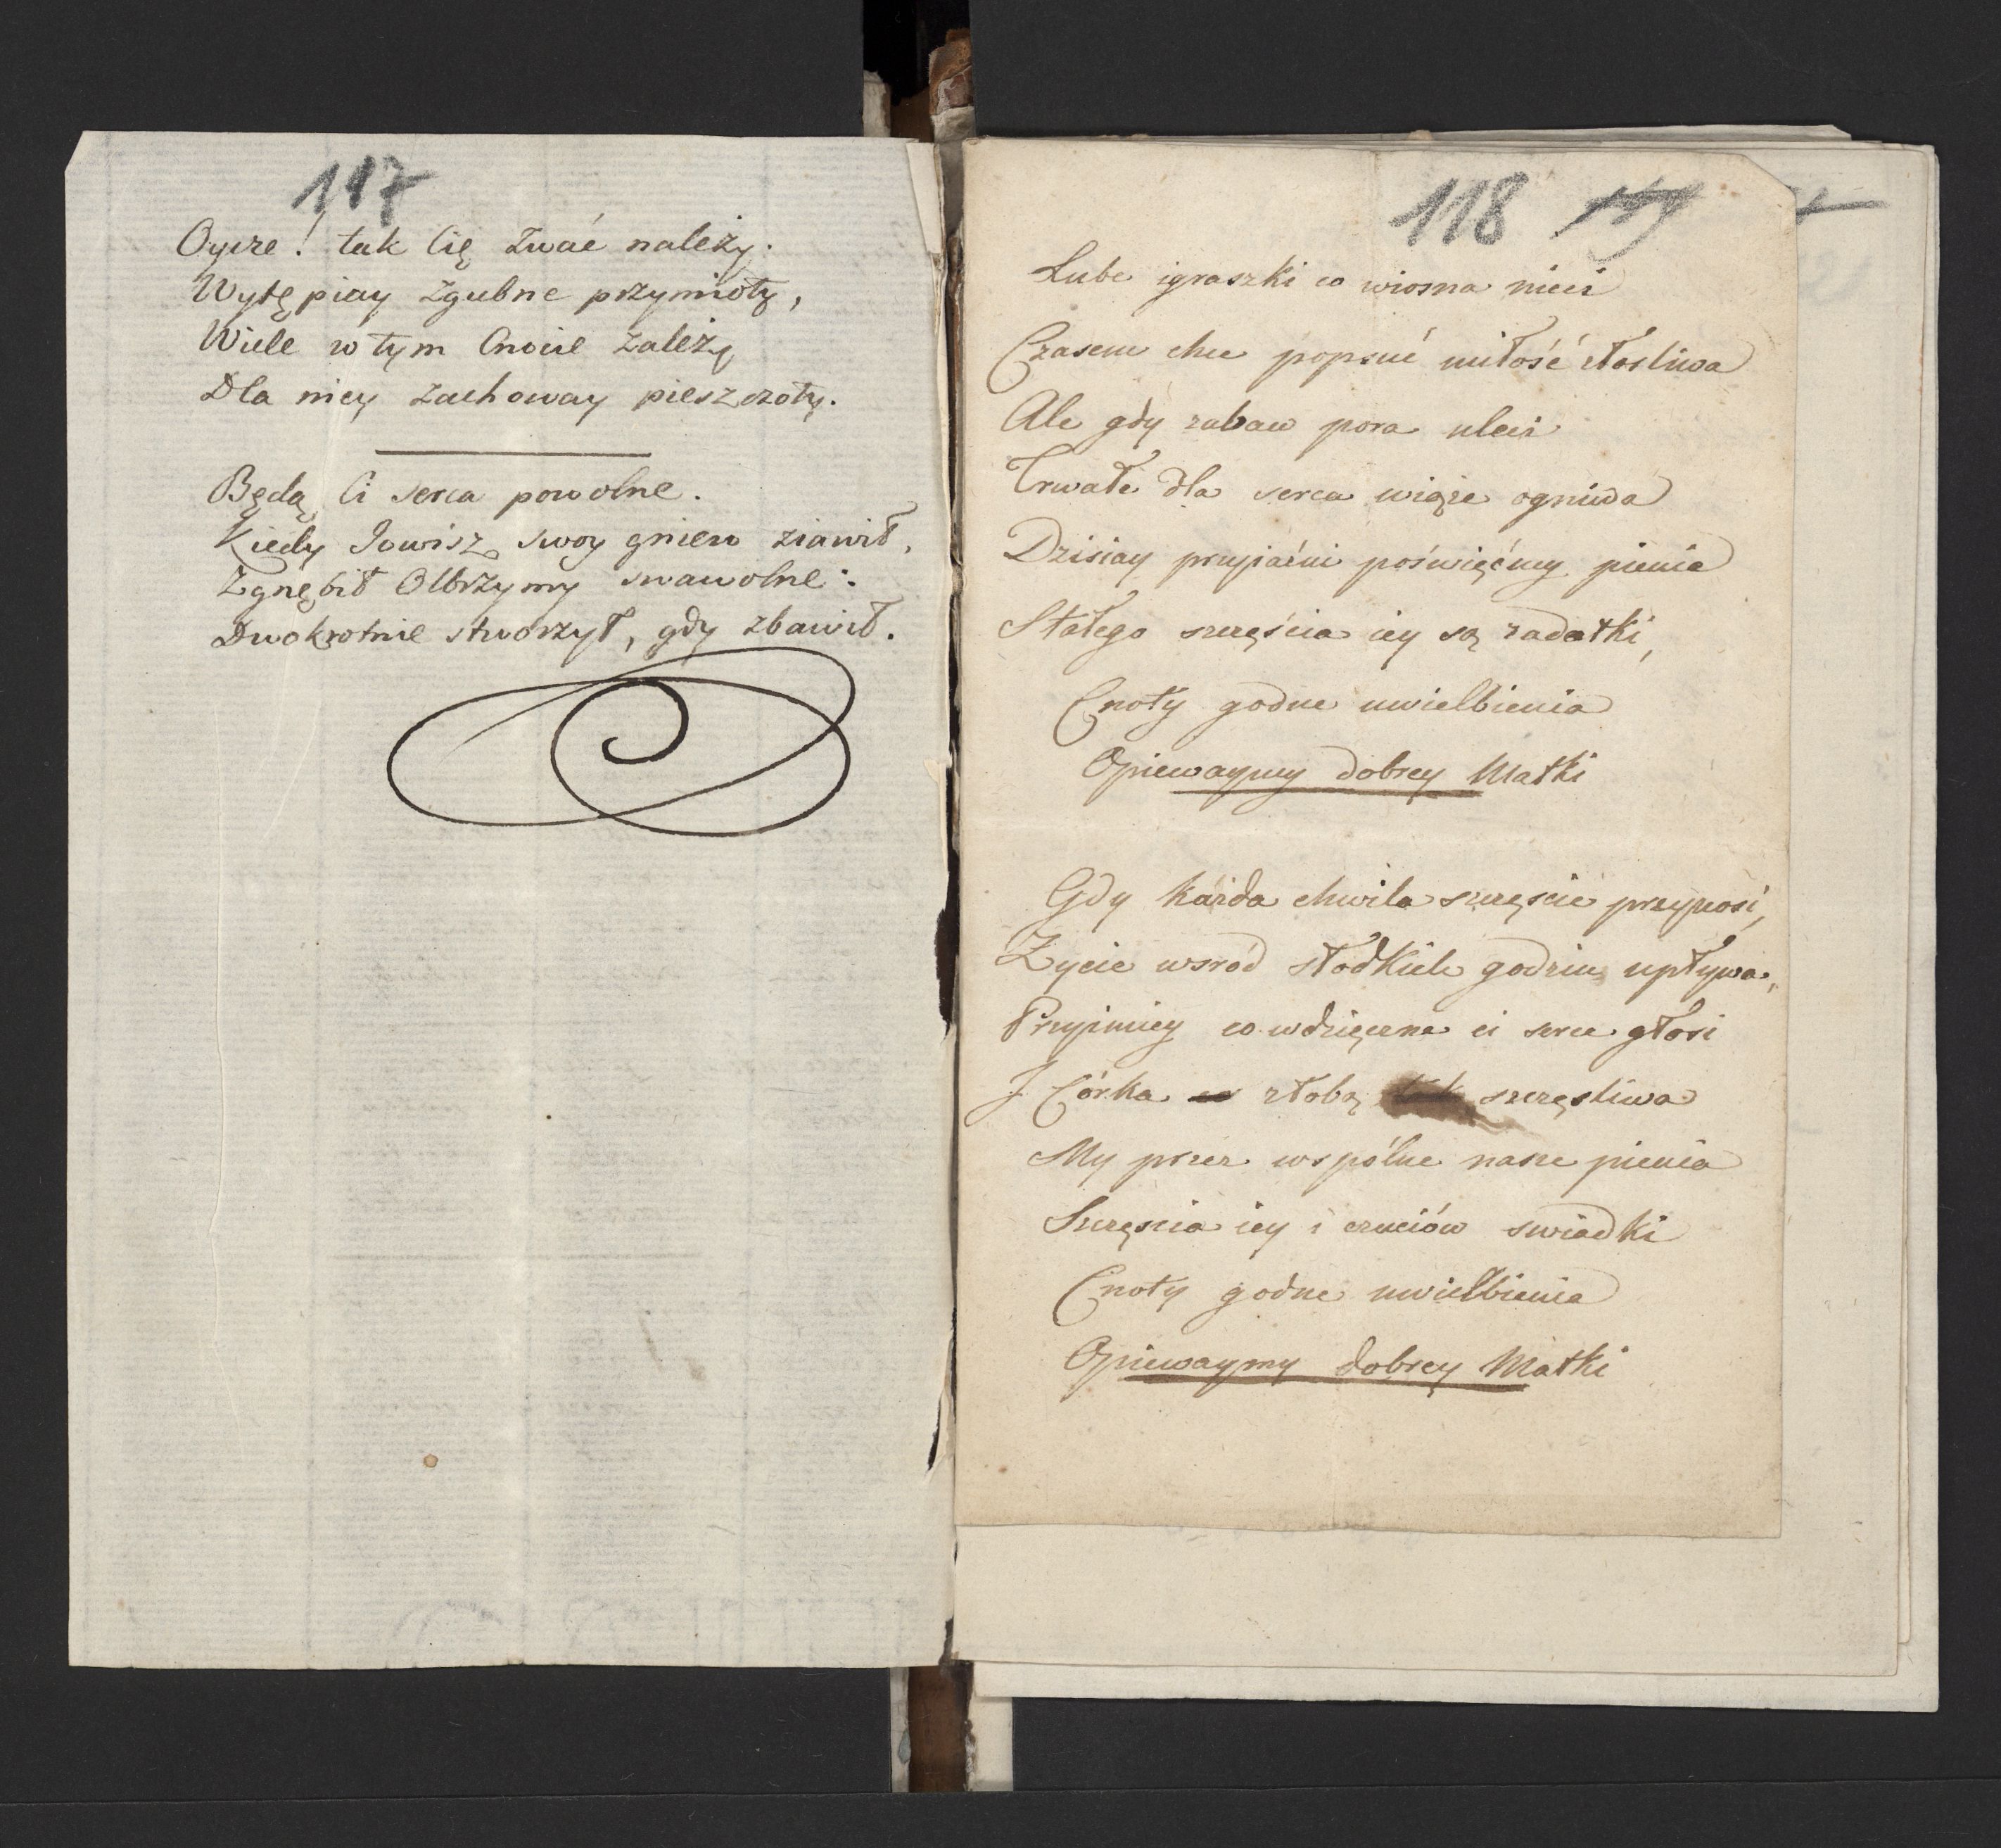 117
Oycze! tak Cię zwać należy.
Wytępiay zgubne przymioty,
Wiele w tym Cnocie zależy
Dla niey zachoway pieszczoty.
Będą Ci serca powolne.
Kiedy Jowisz swoy gniew ziawił,
Zgnębił Olbrzymy swawolne:
Dwokrotnie stworzył, gdy zbawił.
118
Lube igraszki co wiosna nieci
Czasem chce popsuć miłość złosliwa
Ale gdy zabaw pora uleci
Trwałe dla serca wiąże ogniwa
Dzisiay przyiaźni poświęćmy pienia
Stałego szczęścia iey są zadatki,
Cnoty godne uwielbienia
Opiewaymy dobrey Matki
Gdy każda chwila szczęscie przynosi,
Zycie wsród słodkich godzin upływa,
Przyimiey co wdzięczne ci serce głosi
J Córka z tobą szczęsliwa
My przez wspólne nasze pienia
Szczęscia iey i czuciów swiadki
Cnoty godne uwielbienia
Opiewaymy dobrey Matki